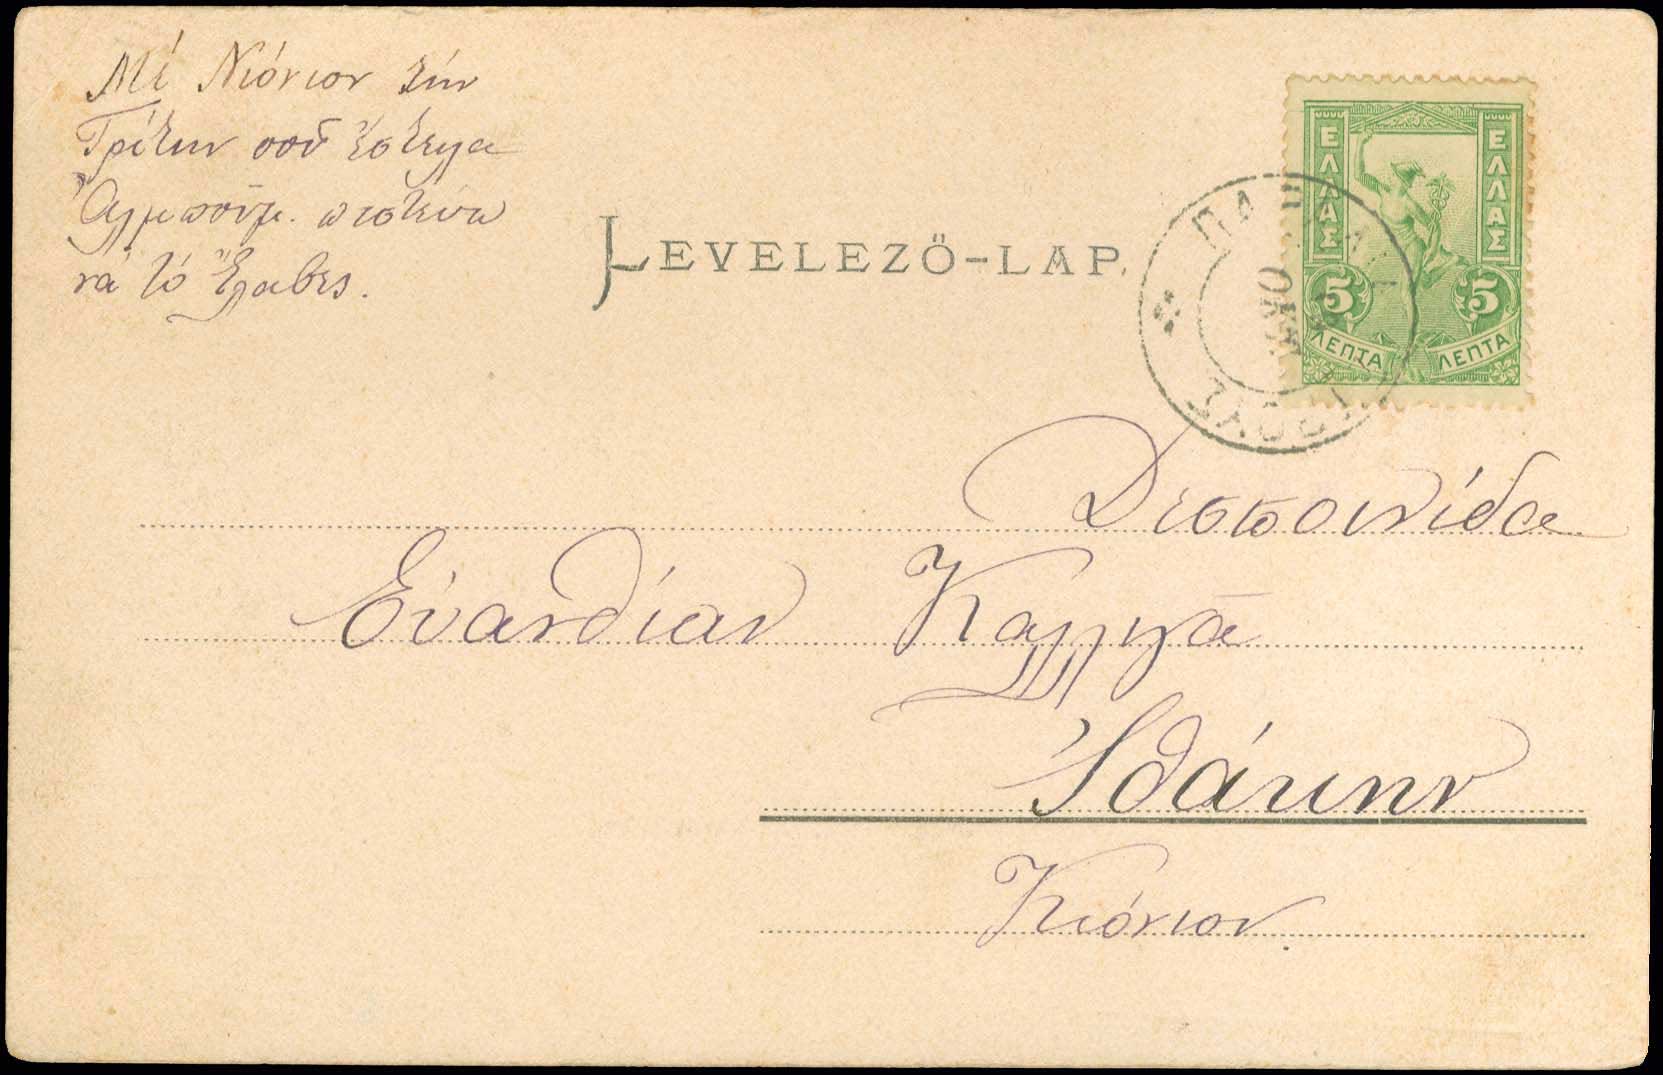 Μὲ Νιόνιον τὴν
Τρίτην σοῦ ἔστειλα
Ἄλμπουμ. πιστεύω
νὰ τὸ ἔλαβες.
LEVELEZŐ-LAP.
ΕΛΛΑΣ
ΕΛΛΑΣ
5
5
ΛΕΠΤΑ
ΛΕΠΤΑ
Δεσποινίδα
Εὐανθίαν
Ἰθάκην
Κιόνιον.